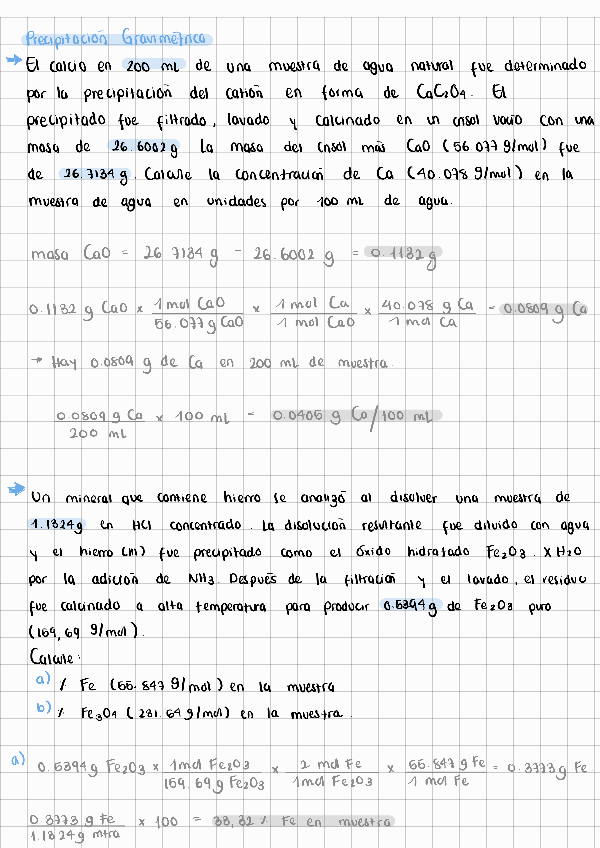 Precipitación Gravimétrica
→ El calcio en 200 mL de una muestra de agua natural fue determinado
por la precipitación del catión en forma de CaC₂O₄. El
precipitado fue filtrado, lavado y calcinado en un crisol vacío con una
masa de 26.6002 g La masa del crisol más CaO (56.077 g/mol) fue
de 26.7134 g. Calcule la concentración de Ca (40.078 g/mol) en la
muestra de agua en unidades por 100 mL de agua.
masa CaO = 26.7134 g - 26.6002 g = 0.1132 g
0.1132 g CaO × 1 mol CaO / 56.077 g CaO × 1 mol Ca / 1 mol CaO × 40.078 g Ca / 1 mol Ca = 0.0809 g Ca
→ Hay 0.0809 g de Ca en 200 mL de muestra.
0.0809 g Ca / 200 mL × 100 mL = 0.0405 g Ca/100 mL
→ Un mineral que contiene hierro se analizó al disolver una muestra de
1.1324g en HCl concentrado. La disolución resultante fue diluido con agua
y el hierro (III) fue precipitado como el óxido hidratado Fe₂O₃ . XH₂O
por la adición de NH₃. Después de la filtración y el lavado, el residuo
fue calcinado a alta temperatura para producir 0.5394g de Fe₂O₃ puro
(159,69 g/mol).
Calcule:
a) % Fe (55.847 g/mol) en la muestra
b) % Fe₃O₄ (231.54 g/mol) en la muestra.
a) 0.5394g Fe₂O₃ × 1mol Fe₂O₃ / 159.69g Fe₂O₃ × 2 mol Fe / 1mol Fe₂O₃ × 55.847 g Fe / 1 mol Fe = 0.3773g Fe
0.3773 g Fe / 1.1324g mtra × 100 = 33,32 % Fe en muestra